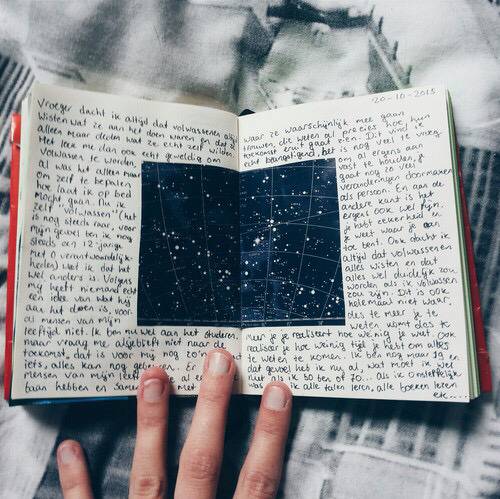 Vroeger dacht ik altijd dat volwassenen altijd
wisten wat ze aan het doen waren en dat ze
alleen maar deden wat ze echt zelf wilden.
Het leek me dan ook echt geweldig om
volwassen te worden,
al was het alleen maar
om zelf te bepalen
hoe laat ik in bed
mocht gaan. Nu ik
zelf "volwassen" (het
is nog steeds raar, voor
mijn gevoel ben ik nog
steeds een 12 jarige
met 0 verantwoordelijk-
heden) weet ik dat het
wel anders is. Volgens
mij heeft niemand echt
een idee van wat hij
aan het doen is,
als mensen van mijn
leeftijd niet. Ik ben nu wel aan het studeren,
maar vraag me alsjeblieft niet naar de
toekomst, dat is voor mij nog zo'n
iets, alles kan nog gebeuren. Er al een
mensen van mijn
baan hebben en met
20-10-2015
waar ze waarschijnlijk mee gaan
trouwen, die weten al precies hoe hun
toekomst eruit gaat zien. Dit vind ik
echt beangstigend, het is nog veel te vroeg
om al ergens aan
vast te houden, je
gaat nog zo veel
veranderingen doormaken
als persoon. En aan de
andere kant is het
ergens ook wel fijn.
Je hebt zekerheid en
je weet waar je aan
toe bent. Ook dacht ik
altijd dat volwassenen
alles wisten en dat
alles wel duidelijk zou
worden als ik volwassen
zou zijn. Dit is ook
helemaal niet waar,
des te meer je te
weten komt des te
meer je je realiseert hoe weinig je weet en
realiseer je hoe weinig tijd je hebt om alles
te weten te komen. Ik ben nog maar 19 en
dat gevoel heb ik nu al, wat moet ik wel
niet als ik 50 ben of 70... Als ik onsterfelijk
was ik alle talen leren, alle boeken lezen
etc...